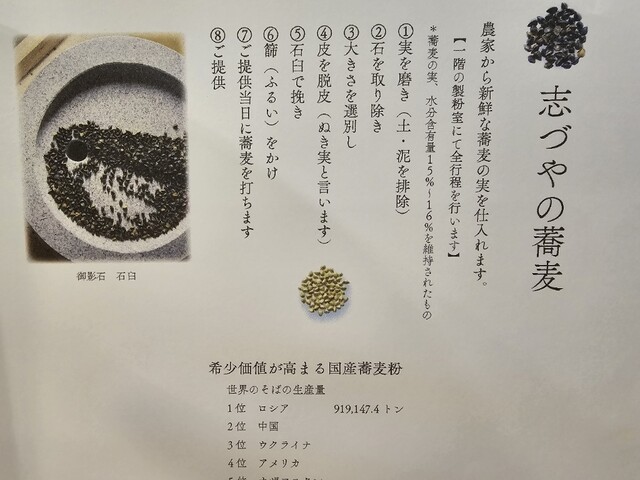 志づやの蕎麦
農家から新鮮な蕎麦の実を仕入れます。
【一階の製粉室にて全行程を行います】
*蕎麦の実、水分含有量15%~16%を維持されたもの
①実を磨き(土・泥を排除)
②石を取り除き
③大きさを選別し
④皮を脱皮(ぬき実と言います)
⑤石臼で挽き
⑥篩(ふるい)をかけ
⑦ご提供当日に蕎麦を打ちます
⑧ご提供
御影石 石臼
希少価値が高まる国産蕎麦粉
世界のそばの生産量
1位 ロシア 919,147.4トン
2位 中国
3位 ウクライナ
4位 アメリカ